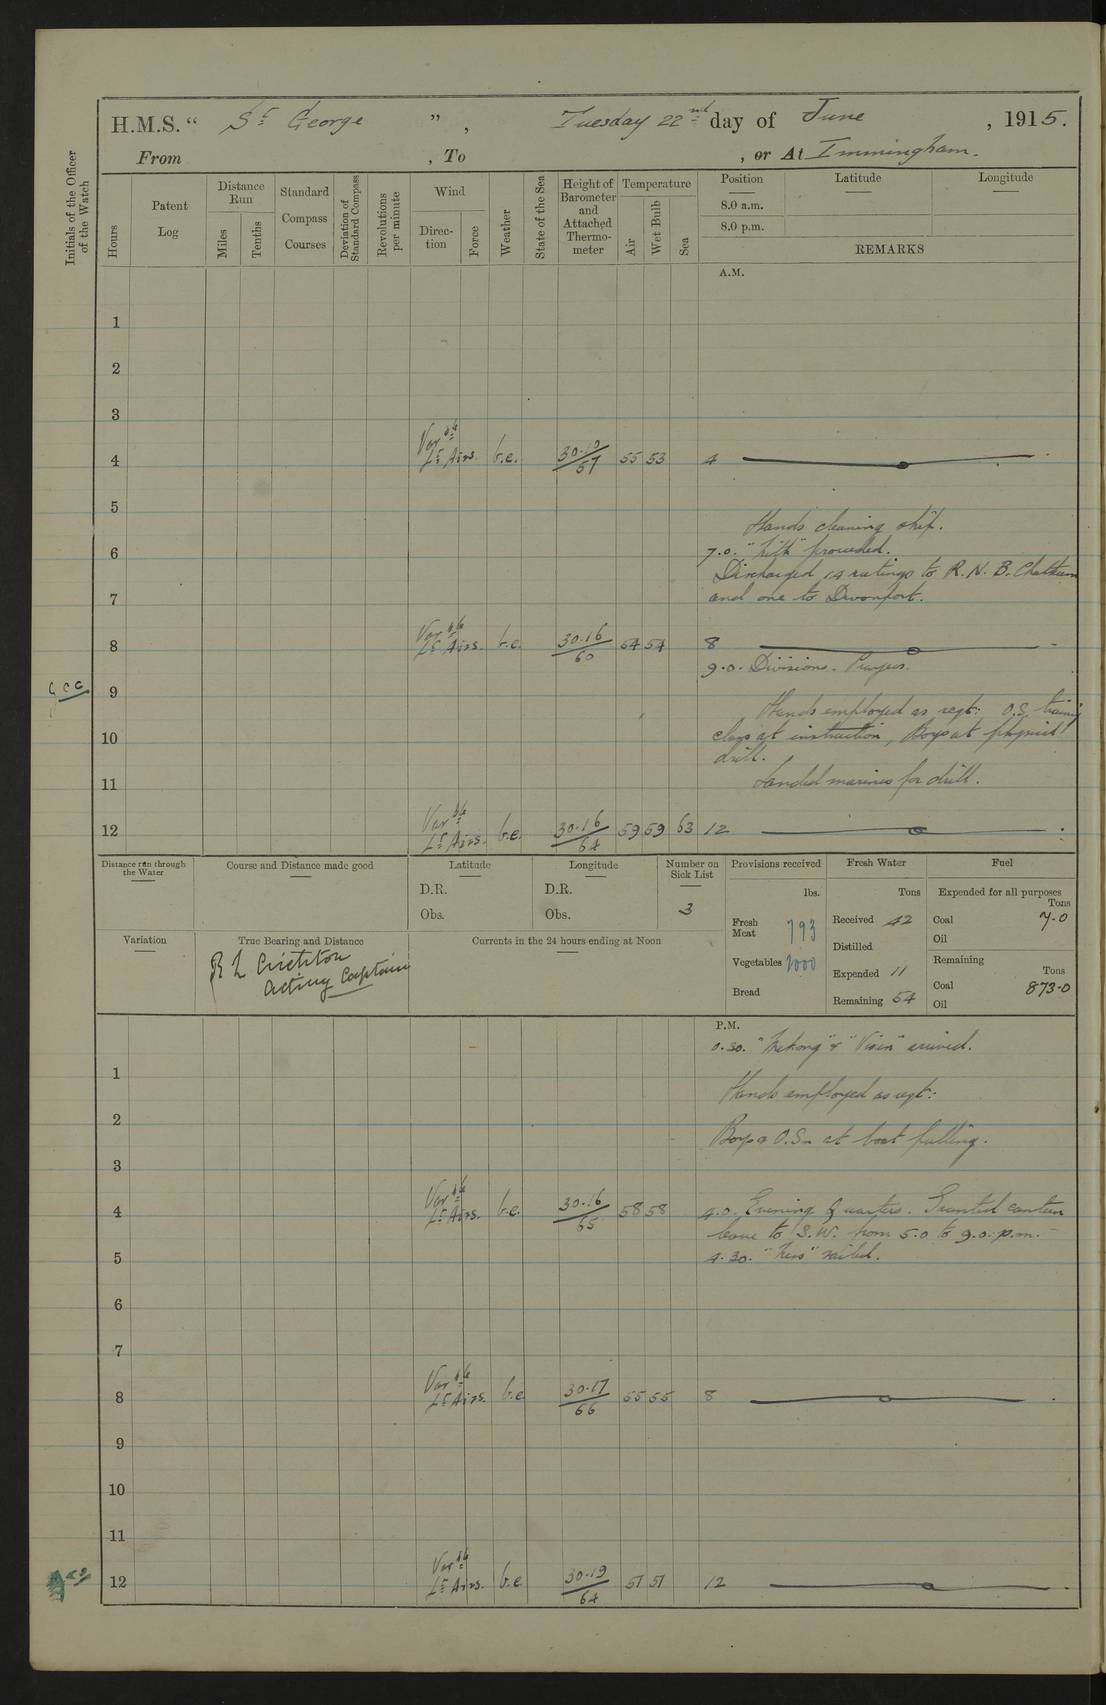 H.M.S. " St George " , Tuesday 22nd day of June , 1915.
From , To , or At Immingham.
Initials of the Officer of the Watch
Hours
Patent Log
Distance Run
Miles
Tenths
Standard Compass Courses
Deviation of Standard Compass
Revolutions per minute
Wind
Direction
Force
Weather
State of the Sea
Height of Barometer and Attached Thermometer
Temperature
Air
Wet Bulb
Sea
Position Latitude Longitude
8.0 a.m.
8.0 p.m.
REMARKS
A.M.
1
2
3
4 Varble Lt Airs. b.c. 30.10/57 55 53 4
5
Hands cleaning ship.
6 7.0. proceeded.
Discharged 14 ratings to R.N.B. Chatham
7 and one to Devonport.
8 Varble Lt Airs. b.c. 30.16/60 54 54 8
9.0. Divisions. Prayers.
9
Hands employed as reqt: O.S. training
10 class at instruction, Boys at physical
drill.
11 Landed marines for drill.
12 Varble Lt Airs. b.c. 30.16/64 59 59 63 12
Distance run through the Water
Course and Distance made good
Latitude
D.R.
Obs.
Longitude
D.R.
Obs.
Number on Sick List
3
Provisions received
lbs.
Fresh Meat 793
Vegetables 2000
Bread
Fresh Water
Tons
Received 42
Distilled
Expended 11
Remaining 54
Fuel
Expended for all purposes
Tons
Coal 7.0
Oil
Remaining
Tons
Coal 873.0
Oil
Variation
True Bearing and Distance
R L Crichton
Acting Captain
Currents in the 24 hours ending at Noon
P.M.
0.30. "Mekong" & "Vixen" arrived.
1
Hands employed as reqt:
2
Boys & O.S. at boat pulling.
3
4 Varble Lt Airs. b.c. 30.16/65 58 58 4.0. Evening Quarters. Granted canteen
leave to S.W. from 5.0 to 9.0. p.m.
5 4.30. "Ness" sailed.
6
7
8 Varble Lt Airs. b.c. 30.17/66 55 55 8
9
10
11
12 Varble Lt Airs. b.c. 30.19/64 51 51 12